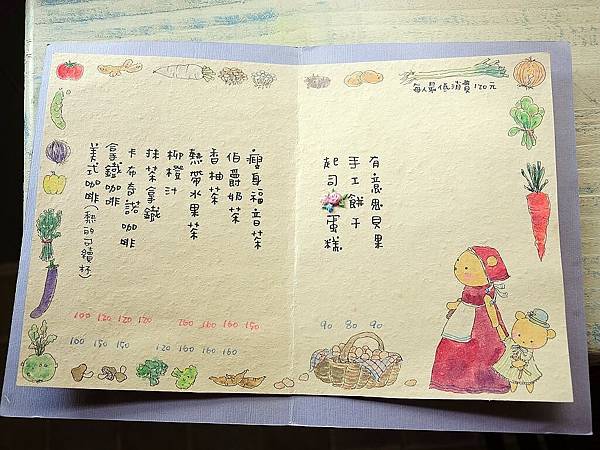 每人最低消費120元
有意思貝果
手工餅干
起司蛋糕
90 80 90
瘦身福音茶
伯爵奶茶
香柚茶
熱帶水果茶
柳橙汁
抹茶拿鐵
卡布奇諾咖啡
拿鐵咖啡
美式咖啡(熱的可續杯)
100 120 120 120 160 160 160 150
100 150 150 120 160 160 160